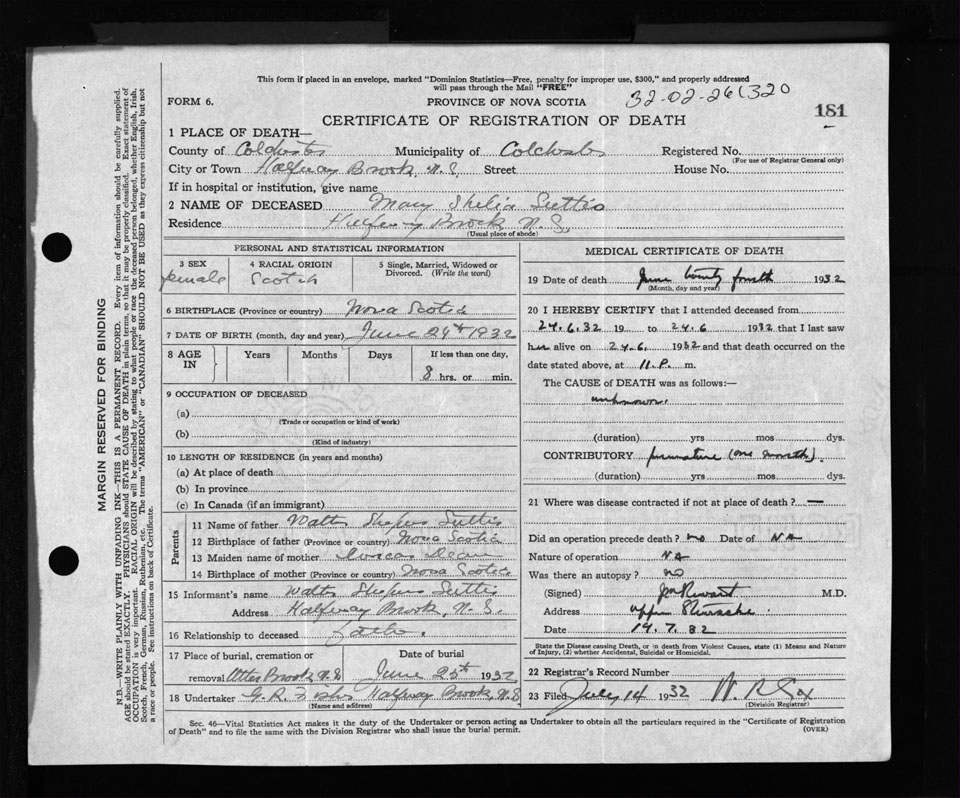 This form if placed in an envelope, marked "Dominion Statistics—Free, penalty for improper use, $300," and properly addressed
will pass through the Mail "FREE"
FORM 6. PROVINCE OF NOVA SCOTIA 32-02-26(320
181
CERTIFICATE OF REGISTRATION OF DEATH
1 PLACE OF DEATH—
County of Colchester Municipality of Colchester Registered No.
(For use of Registrar General only)
City or Town Halfway Brook, N.S. Street House No.
If in hospital or institution, give name
2 NAME OF DECEASED Mary Shelia Suttis
Residence Halfway Brook N.S.
(Usual place of abode)
PERSONAL AND STATISTICAL INFORMATION
3 SEX 4 RACIAL ORIGIN 5 Single, Married, Widowed or
Divorced. (Write the word)
female Scotch
6 BIRTHPLACE (Province or country) Nova Scotia
7 DATE OF BIRTH (month, day and year) June 24th 1932
8 AGE IN Years Months Days If less than one day,
8 hrs. or min.
9 OCCUPATION OF DECEASED
(a)
(Trade or occupation or kind of work)
(b)
(Kind of industry)
10 LENGTH OF RESIDENCE (in years and months)
(a) At place of death
(b) In province
(c) In Canada (if an immigrant)
Parents
11 Name of father Walter Suttis
12 Birthplace of father (Province or country) Nova Scotia
13 Maiden name of mother Dean
14 Birthplace of mother (Province or country) Nova Scotia
15 Informant's name Walter Suttis
Address Halfway Brook, N.S.
16 Relationship to deceased Father.
17 Place of burial, cremation or Date of burial
removal Otter Brook N.S June 25th 1932
18 Undertaker G. R. Halfway Brook N.S
(Name and address)
MEDICAL CERTIFICATE OF DEATH
19 Date of death June twenty fourth 1932
(Month, day and year)
20 I HEREBY CERTIFY that I attended deceased from
24.6.32 19 to 24.6 1932 that I last saw
her alive on 24.6. 1932 and that death occurred on the
date stated above, at 11.P. m.
The CAUSE of DEATH was as follows:—
unknown.
(duration) yrs mos dys.
CONTRIBUTORY premature (one month).
(duration) yrs mos dys.
21 Where was disease contracted if not at place of death? —
Did an operation precede death? no Date of NA
Nature of operation NA
Was there an autopsy? no
(Signed) M.D.
Address Upper
Date 14.7.32
State the Disease causing Death, or in death from Violent Causes, state (1) Means and Nature
of Injury, (2) whether Accidental, Suicidal or Homicidal.
22 Registrar's Record Number
23 Filed July 14 1932
(Division Registrar)
Sec. 46—Vital Statistics Act makes it the duty of the Undertaker or person acting as Undertaker to obtain all the particulars required in the "Certificate of Registration
of Death" and to file the same with the Division Registrar who shall issue the burial permit.
(OVER)
MARGIN RESERVED FOR BINDING
N.B.—WRITE PLAINLY WITH UNFADING INK—THIS IS A PERMANENT RECORD. Every item of information should be carefully supplied.
AGE should be stated EXACTLY. PHYSICIANS should STATE CAUSE OF DEATH in plain terms, so that it may be properly classified. Exact statement of
OCCUPATION is very important. RACIAL ORIGIN will be described by stating to what people or race the deceased person belonged, whether English, Irish,
Scotch, French, German, Russian, Ruthenian, etc. The terms "AMERICAN" or "CANADIAN" SHOULD NOT BE USED as they express citizenship but not
a race or people. See instructions on back of Certificate.